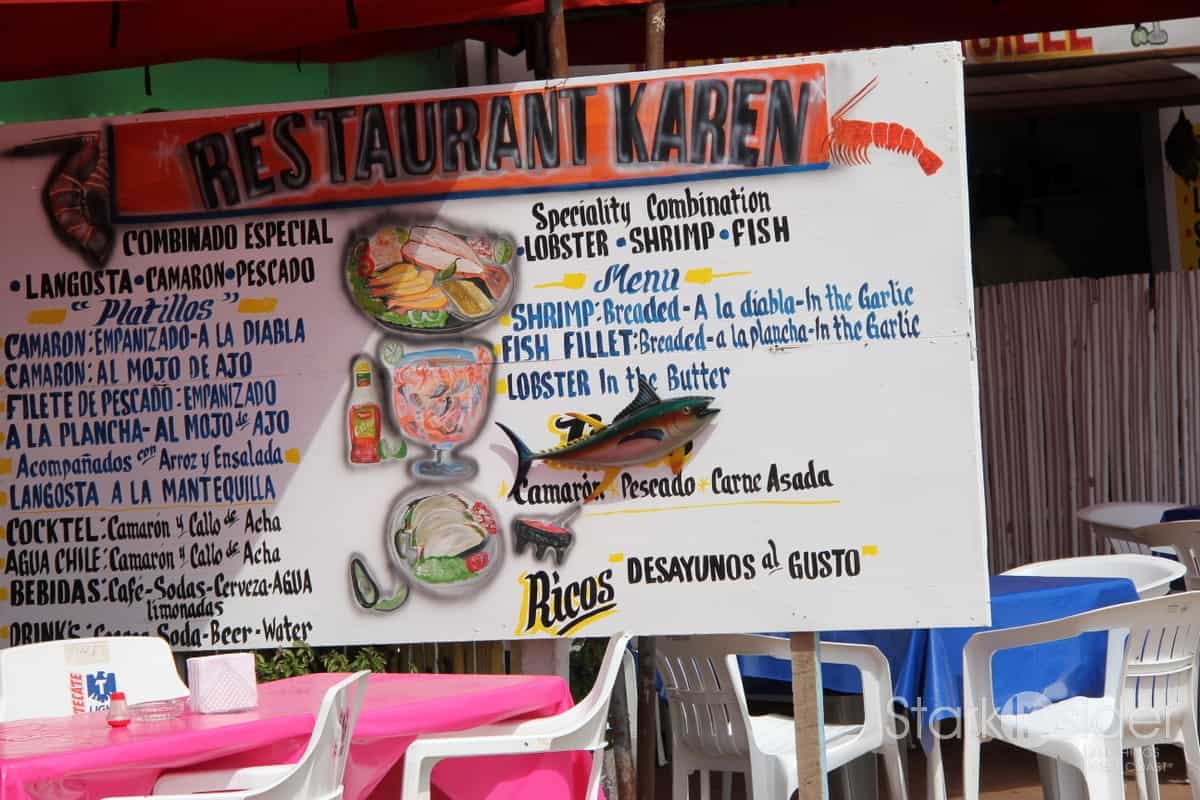 RESTAURANT KAREN
COMBINADO ESPECIAL
•LANGOSTA•CAMARON•PESCADO
"Platillos"
CAMARON:EMPANIZADO-A LA DIABLA
CAMARON:AL MOJO DE AJO
FILETE DE PESCADO:EMPANIZADO
A LA PLANCHA-AL MOJO de AJO
Acompañados con Arroz y Ensalada
LANGOSTA A LA MANTEQUILLA
COCKTEL:Camarón y Callo de Acha
AGUA CHILE:Camaron y Callo de Acha
BEBIDAS:Café-Sodas-Cerveza-AGUA
limonadas
DRINK'S: Soda-Beer-Water
Speciality Combination
•LOBSTER •SHRIMP•FISH
Menu
SHRIMP:Breaded-A la diabla-In the Garlic
FISH FILLET:Breaded-a la plancha-In the Garlic
LOBSTER In the Butter
Camarón * Pescado * Carne Asada
Ricos DESAYUNOS al GUSTO
TECATE
LIGHT
StarkInsider